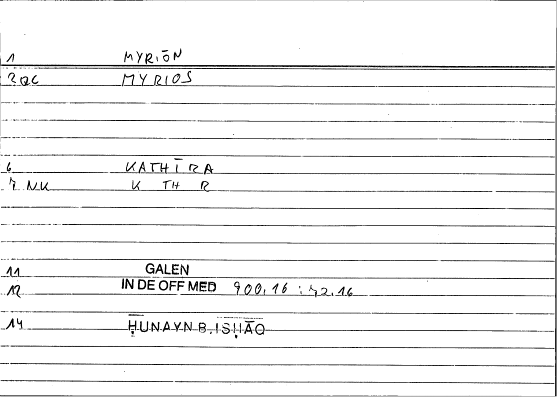 1 MYRIŌN
2 QC MYRIOS
6 KATHĪRA
7 NK K TH R
11 GALEN
12 IN DE OFF MED 900,16 : 42.16
14 ḤUNAYN B. ISḤĀQ